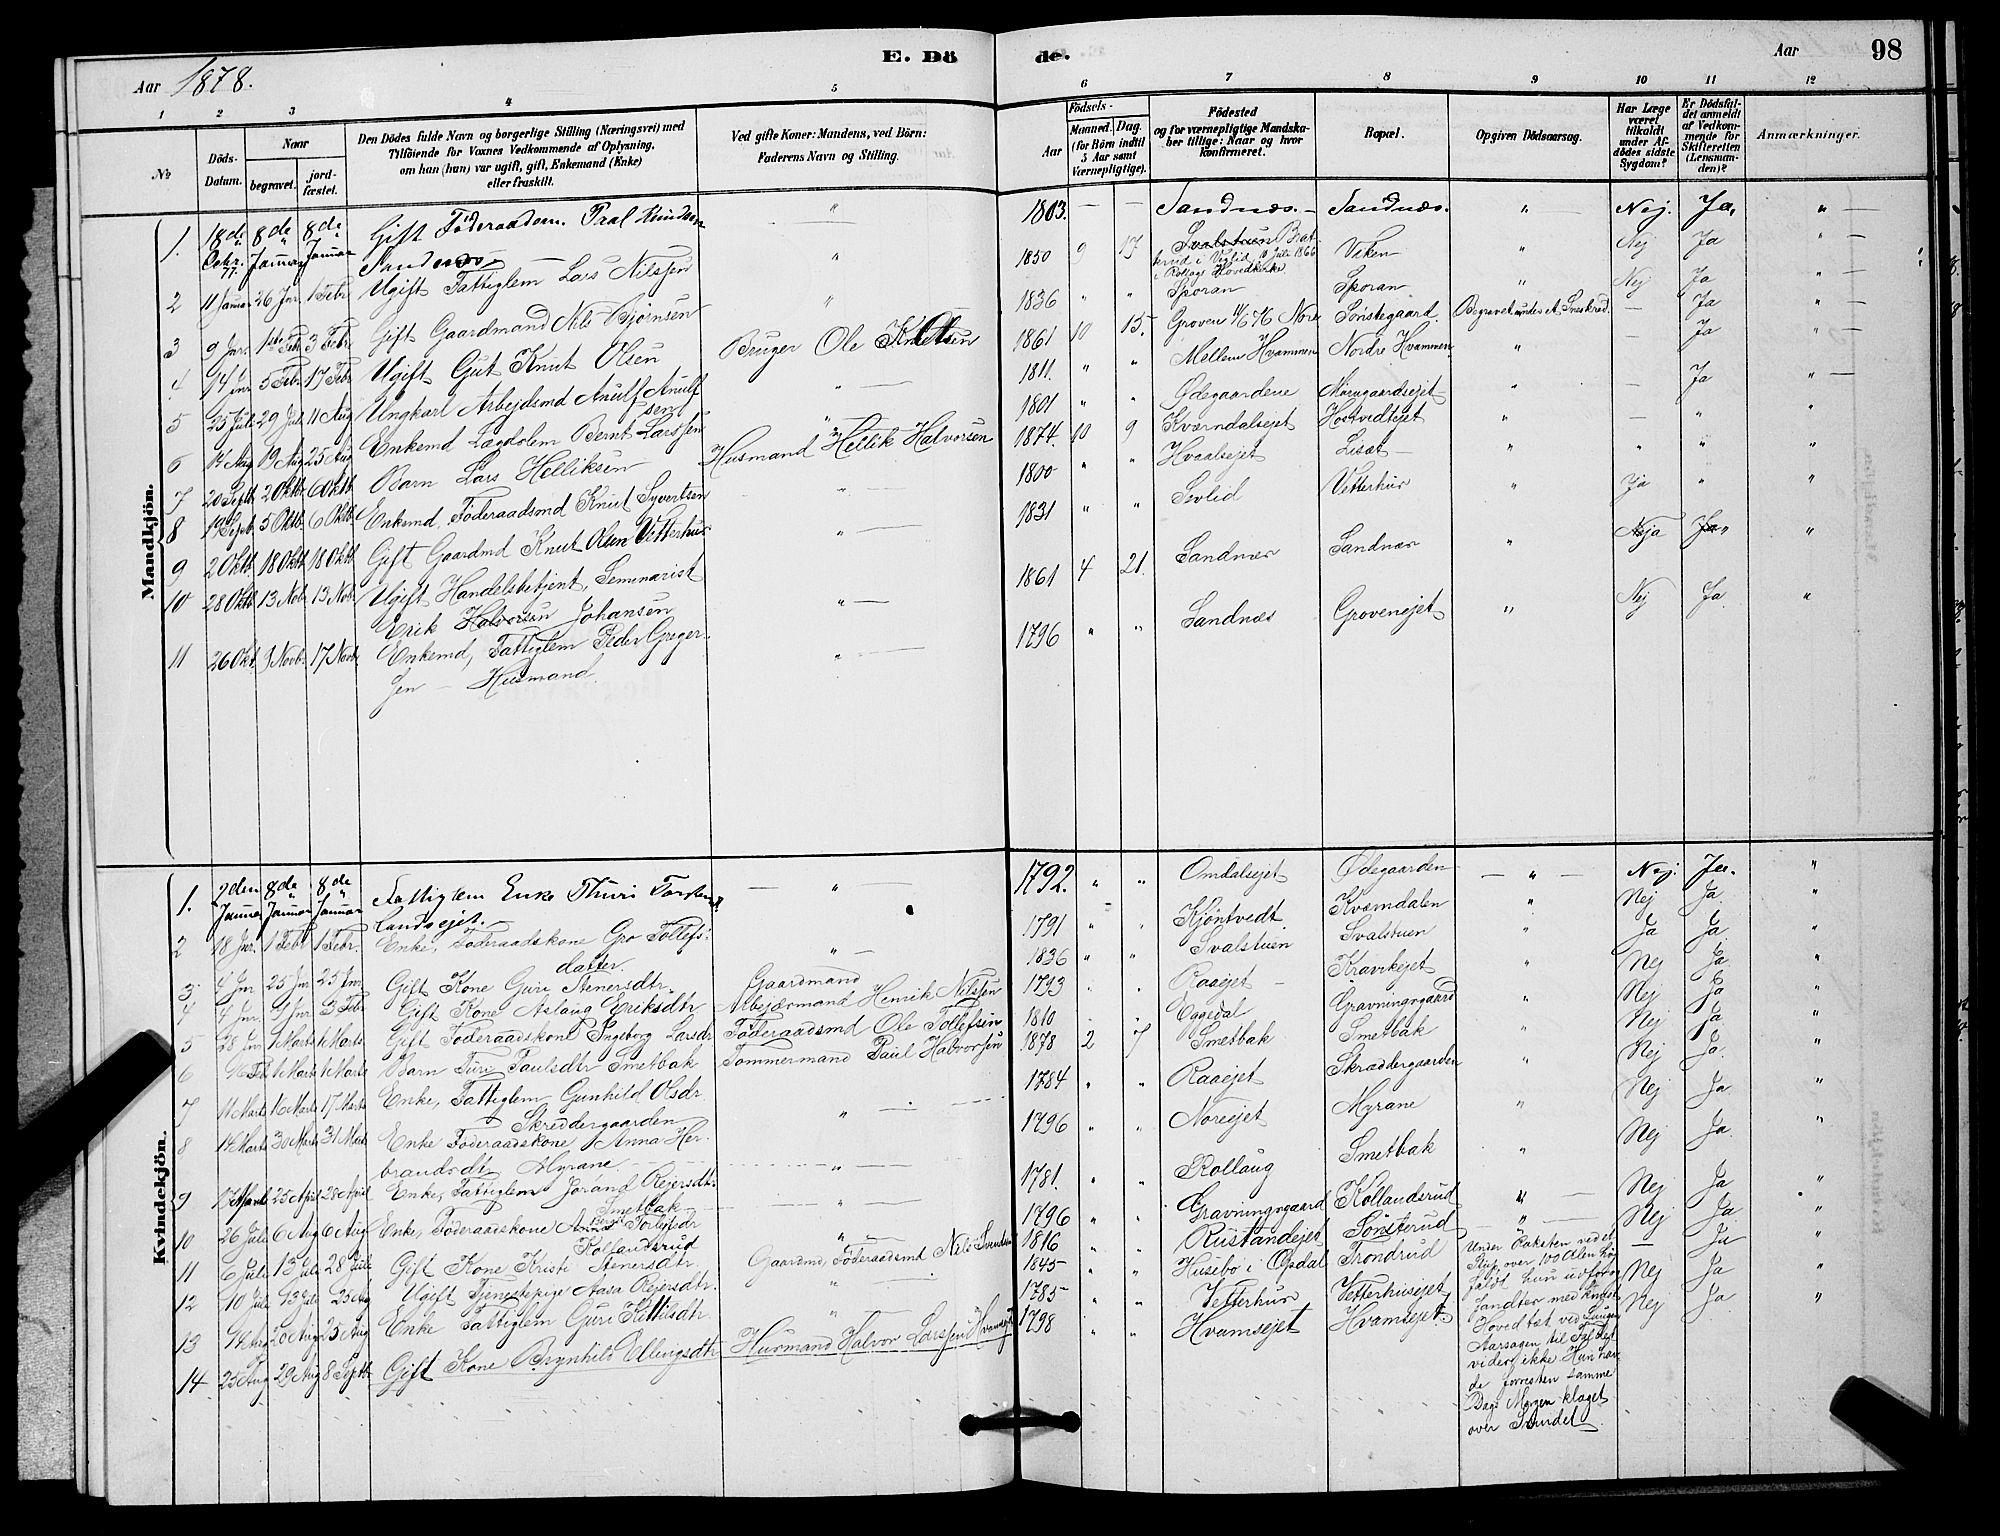 E. Dö
de.
Aar 1878.
Aar
98
1
2
3
4
5
6
7
8
9
10
11
12
№
Döds-
Datum.
Naar
begravet.
jord-
fæstet.
Den Dödes fulde Navn og borgerlige Stilling (Næringsvei) med
Tilföiende for Voxnes Vedkommende af Oplysning,
om han (hun) var ugift, gift, Enkemand (Enke)
eller fraskilt.
Ved gifte Koner: Mandens, ved Börn:
Faderens Navn og Stilling.
Födsels-
Aar
Maaned.
Dag.
(for Börn indtil
5 Aar samt
Værnepligtige).
Födested
og for værnepligtige Mandska-
ber tillige: Naar og hvor
konfirmeret.
Bopæl.
Opgiven Dödsaarsag.
Har Læge
været
tilkaldt
under Af-
dödes sidste
Sygdom?
Er Dödsfal-
det anmeldt
af Vedkom-
mende for
Skifteretten
(Lensman-
den)?
Anmærkninger.
Mandkjön.
1. 18de Decbr. 77 8de Januar 8de Januar Gift Föderaadsm. Knudsen " 1803. — — Sandnæs. — Sandnæs. " Nej. Ja, "
Sandnæs
2 11 Januar 26 Jnr. 1 Febr. Ugift Fattiglem Lars Nilssen " 1850 9 17 Svalstuen Brat-
i Veglid, Juli 1866
i Rollag Hovedkirke
Viken " Nej Ja "
3 9 Jnr. 1ste Febr 3 Febr. Gift Gaardmand Nils Bjørnsen " 1836 " " Sporan Sporan " Nej Ja "
4 14 Jnr 5 Febr 17 Febr Ugift Gut Knut Olsen Bruger Ole 1861 10 15. Groven Nore Sønstegaard. Begravet under et Sneskred. — Ja "
5 25 Juli 29 Jul 11 Aug Ungkarl Arbejdsmd Anulf Anulf-
sen " 1811. " " Mellem Hvammen Nordre Hvammen " Ja "
6 14 Aug 19 Aug 25 Aug Enkemd Lægdslem Bernt Larssen " 1801 " " Ødegaardene Morugaardsejet " — Ja "
7 20 Septb. 2 Oktb. 6 Oktb. Barn Lars Helliksen Husmand Hellik Halvorsen 1874. 10 9 Kværndalsejet Hostvedtejet " — " "
8 19 Septb 5 Oktb. 6 Oktb. Enkemd. Föderaadsmd Knut Syvertsen " 1800 " " Hvaalsejet Lisæt " " " "
9 2 Oktb. 18 Oktb 18 Oktb Gift Gaardmd Knut Olsen Vetterhus " 1831 " " Sevlid Vetterhus " Ja " "
10 28 Oktb 13 Nob. 13 Nob. Ugift Handelsbetjent, Seminarist " 1861 4 21. Sandnæs Sandnæs " "
Erik Halvorsen Johansen
11 26 Okt. 9 Novb. 17 Novb. Enkemd, Fattiglem Peder Greger-
sen — Husmand. " 1796 " " Sandnæs Grovenejet " Nej Ja "
Kvindekjön.
1. 2den Januar 8de Januar 8de Januar Fattiglem Enke Thuri " 1792. " " Omdalsejet Ødegaarden " Nej. Ja. "
Landsejet.
2 18 Jnr. 1 Febr 1 Febr. Enke, Föderaadskone Gro Tollefs-
datter. " 1791 " " Kjöntvedt Kværndalen " Nej Ja. "
3 25 Jnr 25 Jnr Gift Kone Guri Stenersdtr. Gaardmand 1836 " " Svalstuen Svalstuen " Ja Ja "
4 3 Febr Gift Kone Aslaug Eriksdtr Henrik Nilssen 1793 Raaejet Kravikejet " Nej Ja "
5 28 Jnr 1 Marts 1 Marts Gift Föderaadskone Ingeborg Larsdr Föderaadsmd Ole Tollefsen 1810 Eggedal Gravningsgaard " Nej Ja "
6 1 Marts 1 Marts Barn Turi Paulsdtr Smetbak Tømmermand Paul Halvorsen 1878 2 7 Smetbak Smetbak " Nej Ja "
7 11 Marts 16 Marts 17 Marts Enke, Fattiglem Gunhild Olsdr.
Skreddergaarden " 1784 " " Raaejet Skræddergaarden " Nej Ja. "
8 14 Marts 30 Marts 31 Marts Enke Föderaadskone Anna Her-
brandsdtr Myrane. " 1796 " " Noreejet Myrane " Nej Ja "
9 17 Marts 25 April 28 April Enke, Fattiglem Jorand Rejersdtr.
Smetbak " 1781. " " Rollaug Smetbak " Nej Ja. "
10 26 Juli 6 Aug 6 Aug Enke, Föderaadskone
Kollandsrud " 1796 " " Gravningsgaard Kollandsrud " Nej Ja "
11 6 Juli 13 Juli 28 Juli Gift Kone Kristi Stenersdtr Gaardmd, Föderaadsmd Nils Svendsen 1816 " " Rustandejet Sønsterud " Nej Ja
12 10 Juli 13 Juli 25 Aug Ugift Tjenestepige Aasa Rejersdtr. " 1845 " " Husebö i Opdal Trondrud — Ja "
Under
Stup over 100 Alen höj
faldt hun udfor og
fandtes med knust
Hoved tæt ved Laugen
Aarsagen til Faldet
vides ikke Hun hav-
de forresten samme
Dags Morgen klaget
over Svindel.
13 14 Aug 20 Aug 25 Aug Enke Fattiglem Guri Kittilsdtr. " 1785 " " Vetterhus Vetterhusejet Nej Ja "
14 25 Aug 29 Aug 8 Septb. Gift Kone Brynhild Ellingsdtr Husmand Halvor Larssen Hvamsejet 1798 " " Hvamsejet Hvamsejet. Nej Ja "